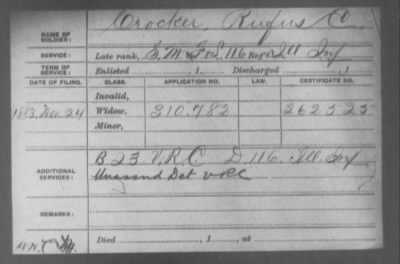 NAME OF SOLDIER: Crocker, Rufus C.
SERVICE: Late rank, Q. M. 116 Reg't Ill Inf
TERM OF SERVICE: Enlisted , 1 . Discharged , 1 .
DATE OF FILING. CLASS. APPLICATION NO. LAW. CERTIFICATE NO.
Invalid,
1883, Nov. 24 Widow, 310.782 262525
Minor,
ADDITIONAL SERVICES: B 23 V.R.C D. 116. Ill Inf
Unassnd Det VRC
REMARKS:
Died , 1 , at